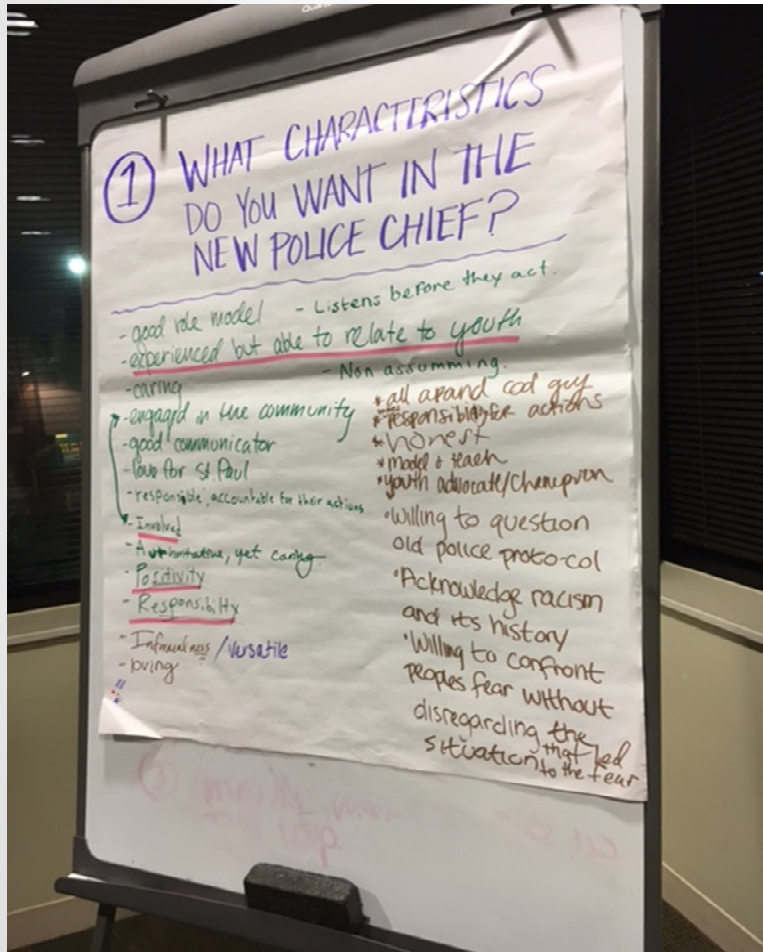 ① WHAT CHARACTERISTICS
DO YOU WANT IN THE
NEW POLICE CHIEF?
- good role model
- Listens before they act.
- experienced but able to relate to youth
- Non assumming.
- caring
- engaged in the community
- good communicator
- love for St. Paul
- responsible, accountable for their actions
- Involved
- Authoritative, yet caring
- Positivity
- Responsibilty
- /Versatile
- loving
* all arand cod guy
* responsiblity for actions
* honest
* model & teach
* youth advocate/Champion
• Willing to question
old police proto-col
• Acknowledge racism
and its history
• Willing to confront
peoples fear without
disregarding the
situation that led
to the fear